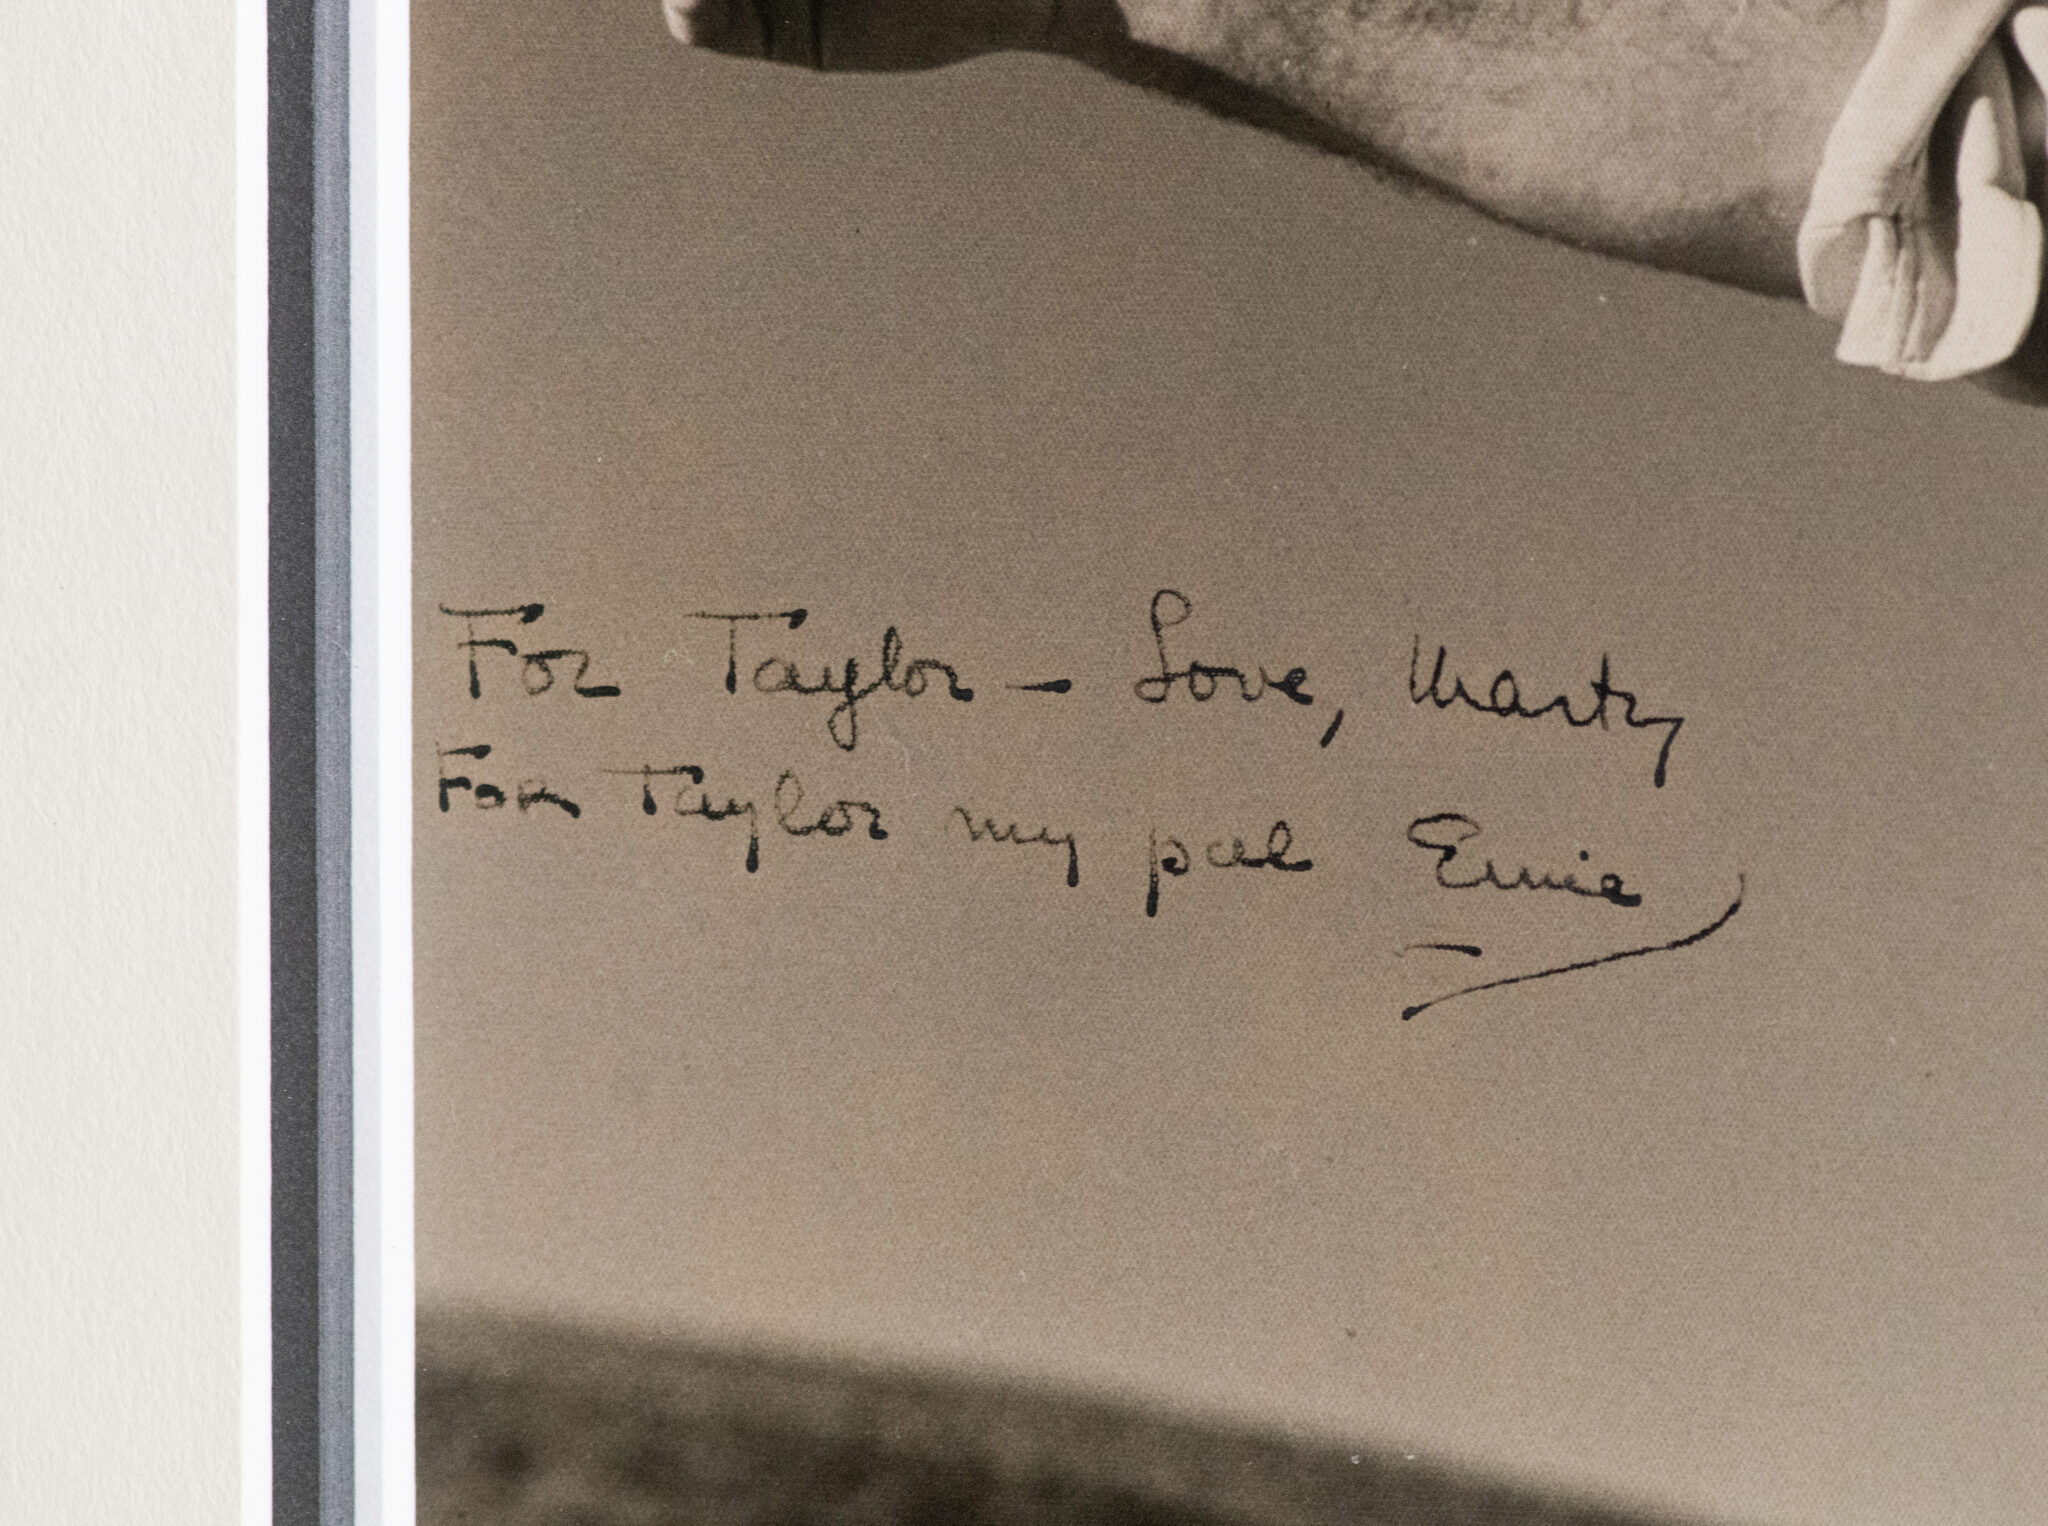 For Taylor – Love, Marty
For Taylor my pal Ernie